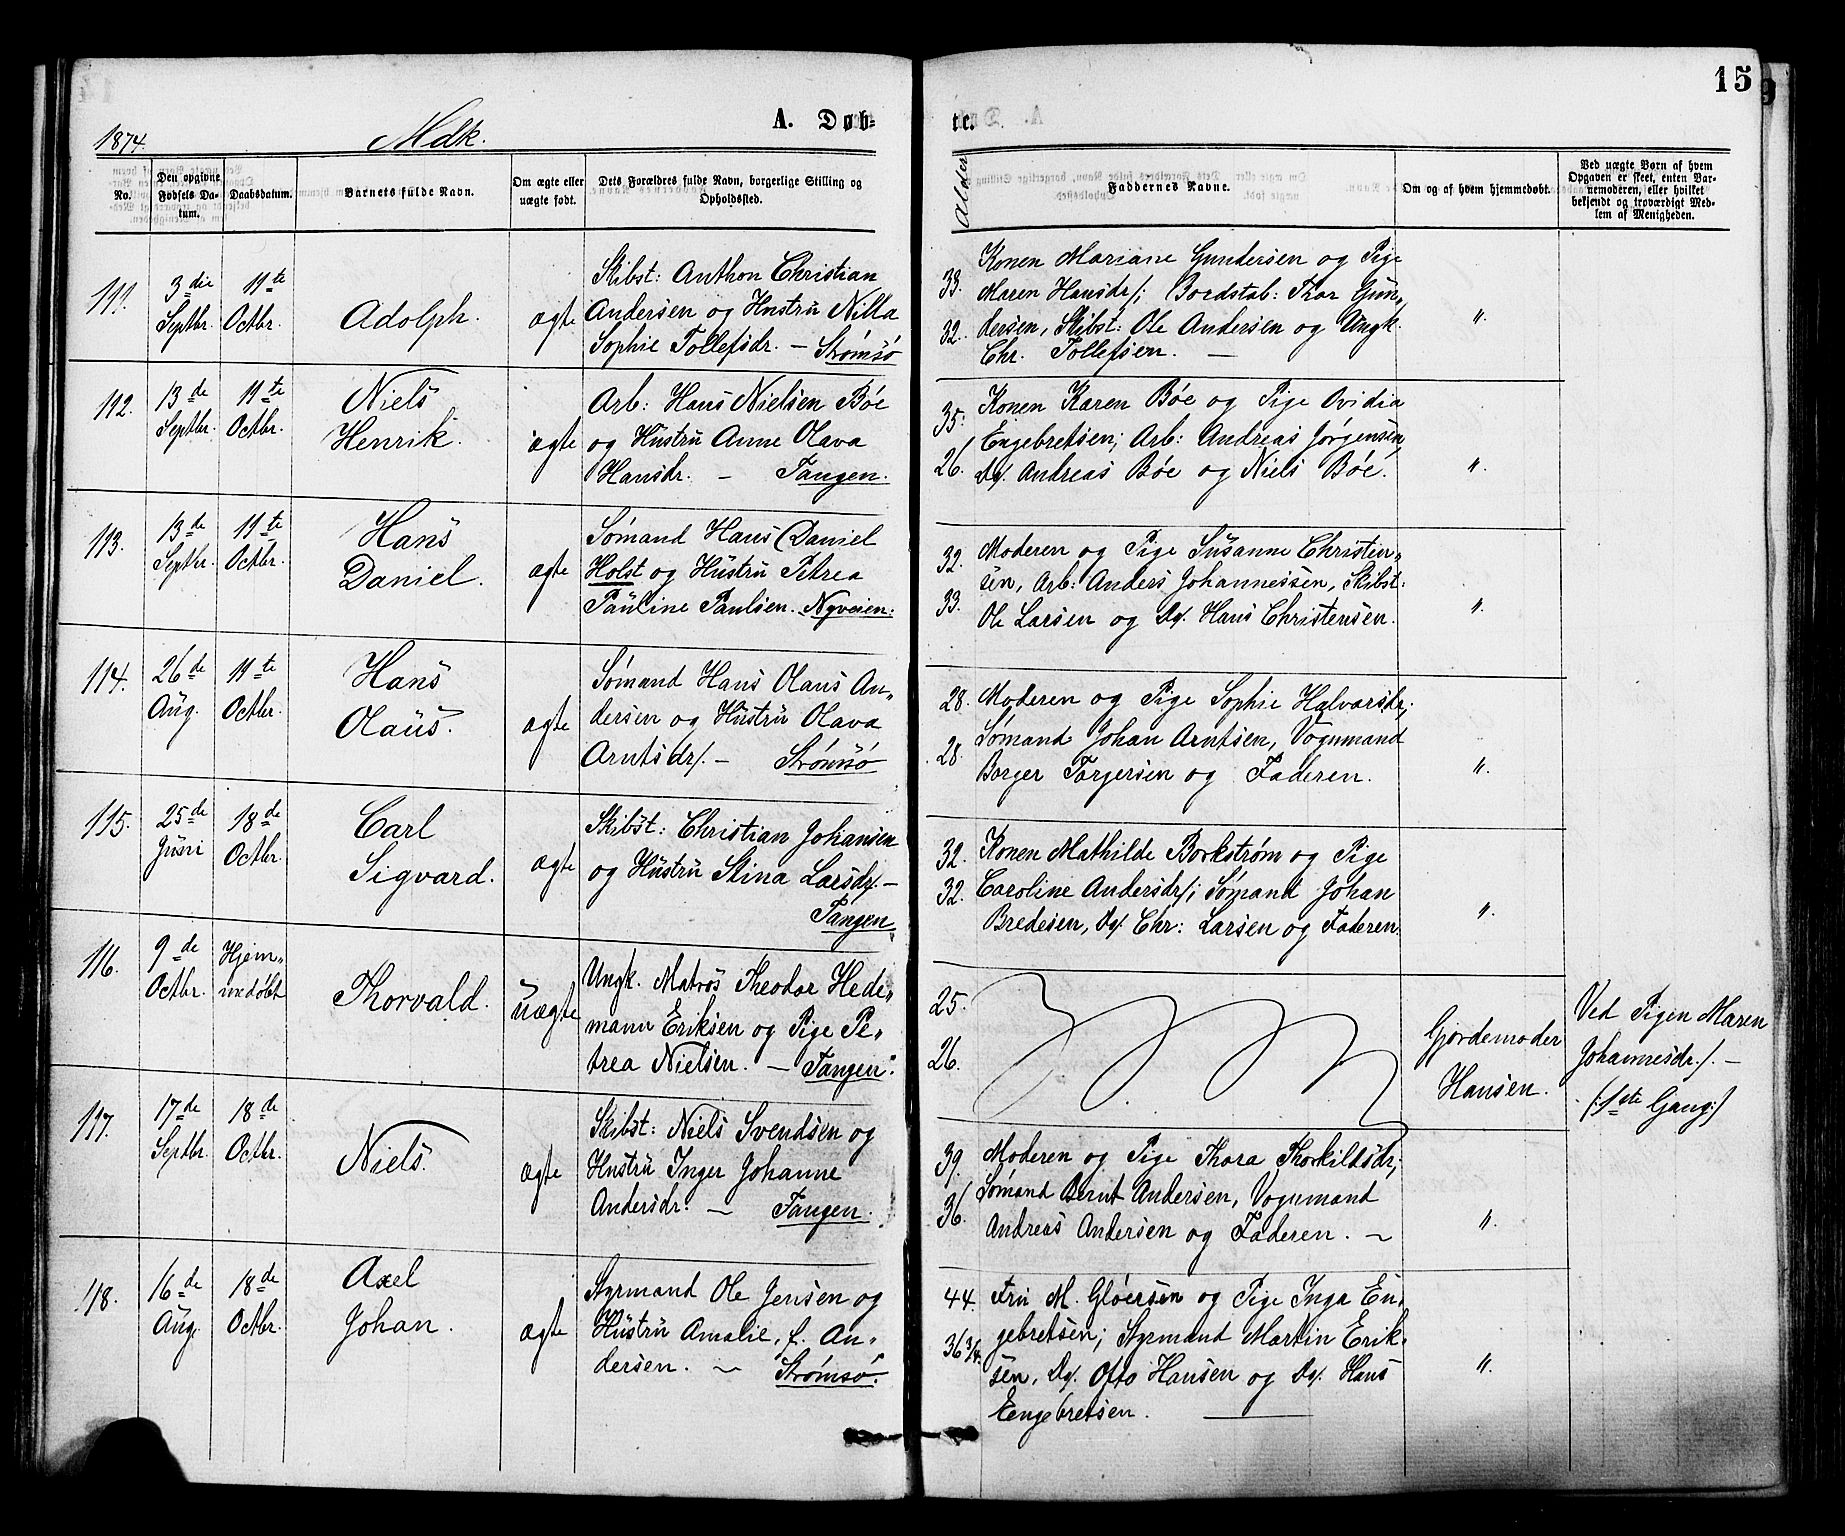 15
1874.
Mdk.
A. Døb-
te.
No.
Den opgivne Fødsels Da-tum.
Daabsdatum.
Barnets fulde Navn.
Om ægte eller uægte født.
Dets Forældres fulde Navn, borgerlige Stilling og Opholdssted.
Alder
Faddernes Navne.
Om og af hvem hjemmedøbt.
Ved uægte Børn af hvem
Opgaven er skeet, enten Bar-
nemoderen, eller hvilket
bekjendt og troværdigt Med-
lem af Menigheden.
111.
3die Septbr.
11te Octbr.
Adolph.
ægte
Skibst: Anthon Christian
Andersen og Hustrü Nilla
Sophie Tollefsdr. – Strømsø
33.
32.
Konen Mariane Gundersen og Pige
Maren Hansdr/; Bordstab: Thor Gün,,
dersen, Skibst: Ole Andersen og Ungk.
Chr. Tollefsen. –
"
112.
13de Septbr.
11te Octbr.
Niels
Henrik.
ægte
Arb: Hans Nielsen Bøe
og Hüstrü Anne Olava
Hansdr. – Tangen.
35.
26.
Konen Karen Bøe og Pige Ovidia
Engebretsen; Arb: Andreas Jørgensen,
Do/. Andreas Bøe og Niels Bøe.
"
113.
13de Septbr.
11te Octbr.
Hans
Daniel.
ægte
Sømand Hans Daniel
Holst og Hüstrü Petrea
Pauline Paulsen. Nyveien.
32.
33.
Moderen og Pige Süsanne Christen,,
sen, Arb: Anders Johannessen, Skibst:
Ole Larsen og Do/. Hans Christensen.
"
114.
26de Aug.
11te Octbr.
Hans
Olaüs.
ægte
Sømand Hans Olaus An,,
dersen og Hüstrü Olava
Arntsdr/. – Strømsø
28.
28.
Moderen og Pige Sophie Halvorsdr;
Sømand Johan Arntsen, Vognmand
Borger Torgersen og Faderen.
"
115.
25de Jüni
18de Octbr.
Carl
Sigvard.
ægte
Skibst: Christian Johansen
og Hüstrü Stina Larsdr/. –
Tangen.
32.
32.
Konen Mathilde Borkstrøm og Pige
Caroline Andersdr/; Sømand Johan
Bredesen, Do/. Chr: Larsen og Faderen.
"
116.
9de Octbr.
Hjem,,
medøbt
Thorvald.
uægte
Ungk. Matros Theodor Hede,,
mann Eriksen og Pige Pe,,
trea Nielsen. – Tangen.
25.
26.
Gjordemoder
Hansen.
Ved Pigen Maren
Johannesdr/. –
(:1ste Gang:)
117.
17de Septbr.
18de Octbr.
Niels.
ægte
Skibst: Niels Svendsen og
Hustrü Inger Johanne
Andersdr. – Tangen.
39.
36.
Moderen og Pige Thora Thorkildsdr;
Sømand Bernt Andersen, Vognmand
Andreas Andersen og Faderen. –
"
118.
16de Aug.
18de Octbr.
Axel
Johan.
ægte
Styrmand Ole Jensen og
Hüstrü Amalie, f. An,,
dersen. – Strømsø.
44.
36 3/4.
Frü M. Gløersen og Pige Inga En,,
gebretsen; Styrmand Martin Erik,,
sen, Do/. Otto Hansen og Do/. Hans
Eengebretsen.
"